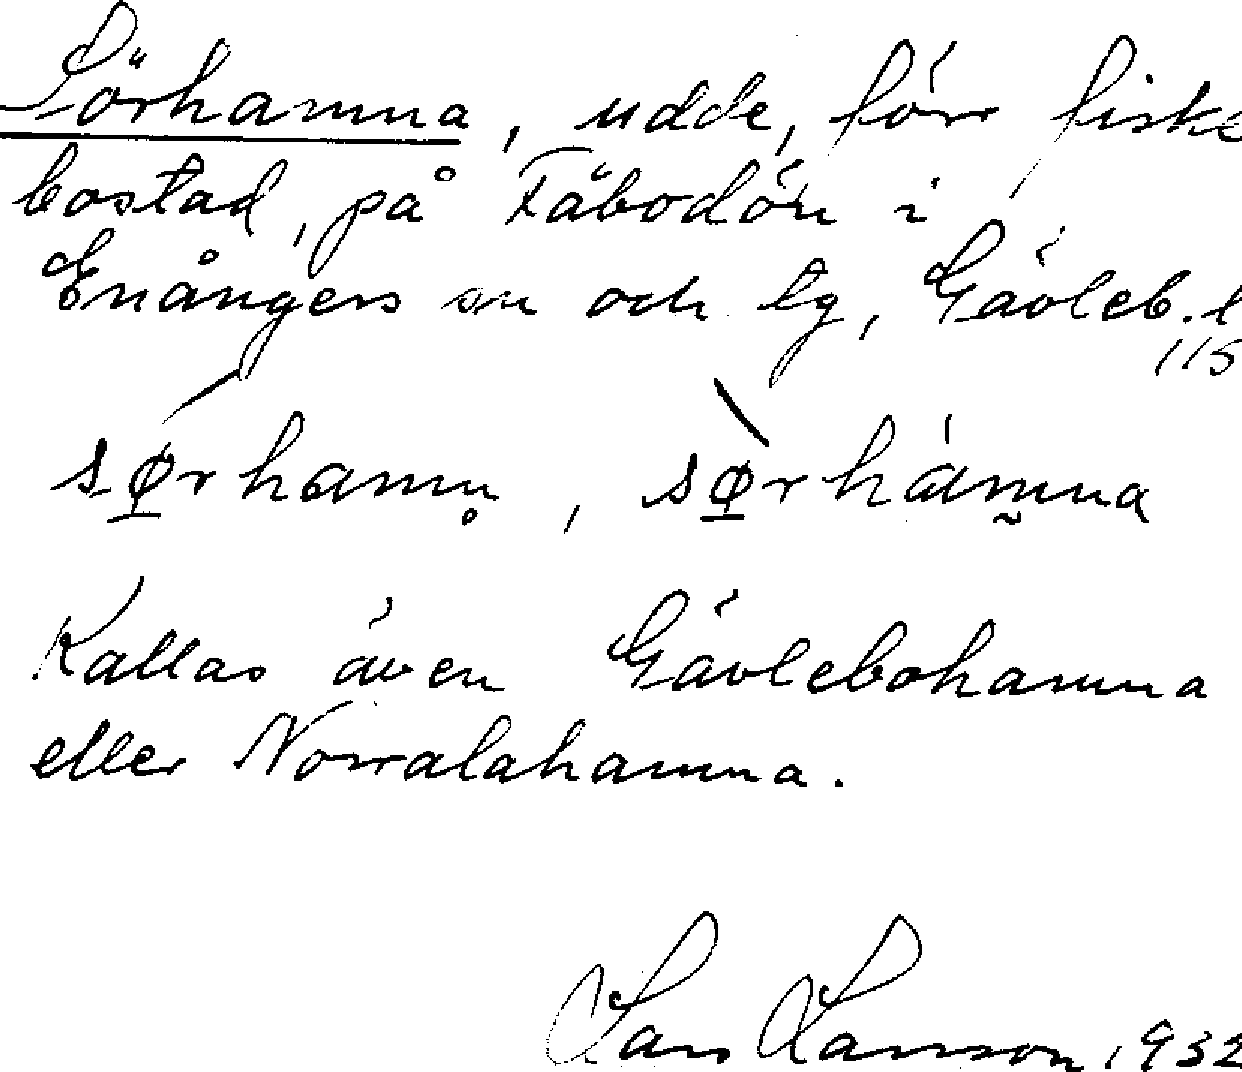 Sörhamna, udde, förr fiske
bostad, på Fäbodön i
Enångers sn och tg, Gävleb. l
115
sørhamn̥, sørhámna
Kallas även Gävlebohamna
eller Norralahamna.
Lars Larsson 1932